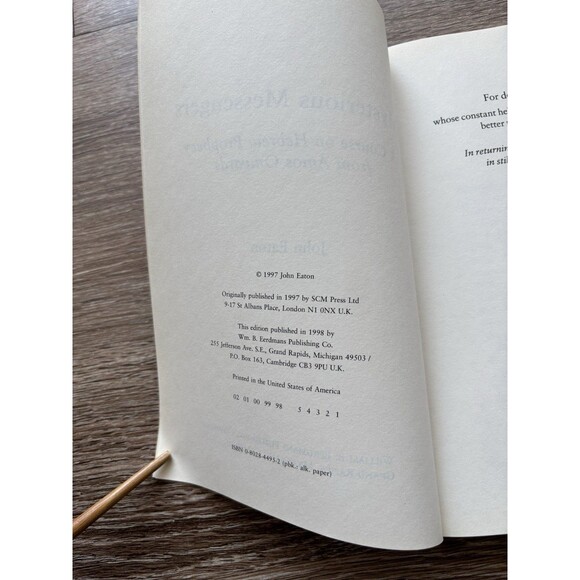 © 1997 John Eaton
Originally published in 1997 by SCM Press Ltd
9-17 St Albans Place, London N1 0NX U.K.
This edition published in 1998 by
Wm. B. Eerdmans Publishing Co.
255 Jefferson Ave. S.E., Grand Rapids, Michigan 49503 /
P.O. Box 163, Cambridge CB3 9PU U.K.
Printed in the United States of America
02 01 00 99 98 5 4 3 2 1
ISBN 0-8028-4493-2 (pbk.: alk. paper)
For
whose constant
better
In returning
in